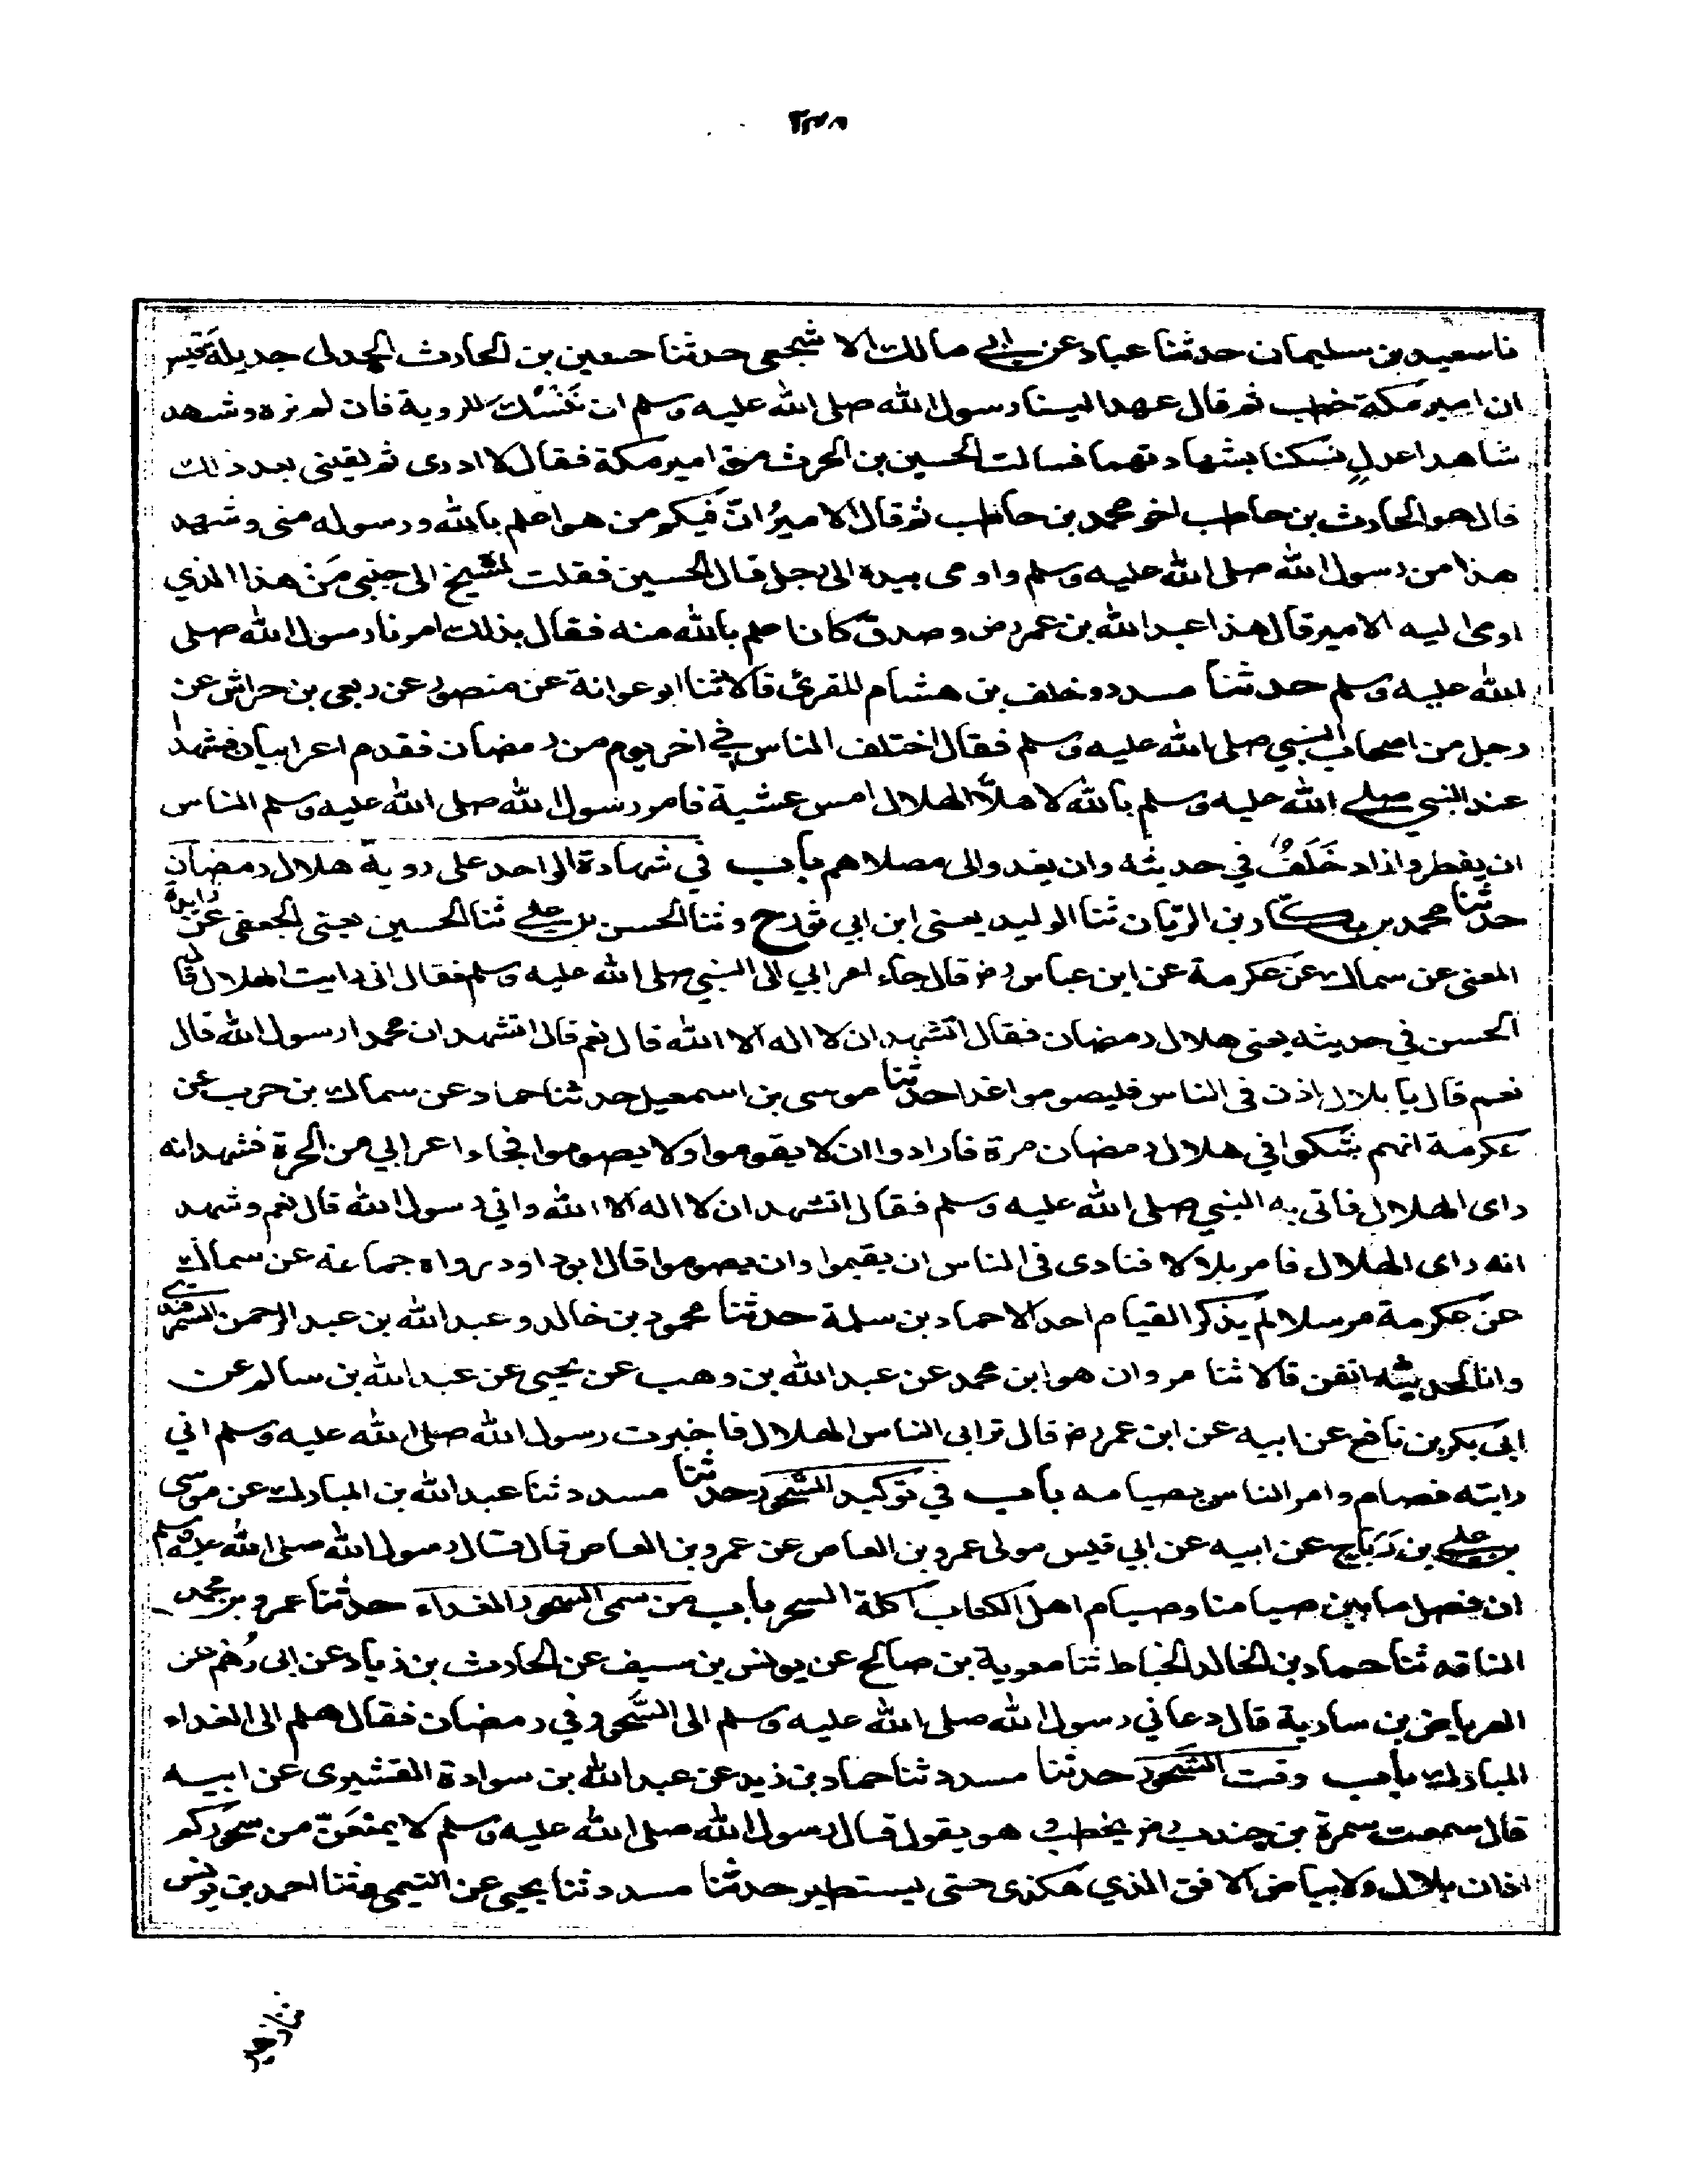 ٢٣٨
نا سعيد بن سليمان حدثنا عباد عن ابي مالك الاشجعي حدثنا حسين بن الحارث الجدلي جديلة قيس
ان امير مكة خطب ثم قال عهد الينا رسول الله صلى الله عليه وسلم ان نَنْسُكَ للروية فان لم نره وشهد
شاهدا عدلٍ نسكنا بشهادتهما فسالت الحسين بن الحرث من امير مكة فقال لا ادرى ثم لقينى بعد ذلك
قال هو الحارث بن حاطب اخو محمد بن حاطب ثم قال الاميرُ انّ فيكم من هو اعلم بالله ورسوله منى وشهد
هذا من رسول الله صلى الله عليه وسلم واومى بيده الى رجل قال الحسين فقلت لشيخ الى جنبى مَنْ هذا الذي
اومى اليه الامير قال هذا عبد الله بن عمر رض وصدق كان اعلم بالله منه فقال بذلك امرنا رسول الله صلى
الله عليه وسلم حدثنا مسدد وخلف بن هشام المقرئ قالا ثنا ابو عوانة عن منصور عن ربعى بن حراش عن
رجل من اصحاب النبي صلى الله عليه وسلم فقال اختلف الناس في اخر يوم من رمضان فقدم اعرابيان فشهدا
عند النبي صلى الله عليه وسلم بالله لاهلّا الهلال امس عشية فامر رسول الله صلى الله عليه وسلم الناس
ان يفطروا زاد خَلَفٌ في حديثه وان يغدوا الى مصلاهم باب في شهادة الواحد على روية هلال رمضان
حدثنا محمد بن بكار بن الريّان ثنا الوليد يعنى ابن ابي ثور ح وثنا الحسن بن علي ثنا الحسين يعنى الجعفى عن زايدة
المعنى عن سماك عن عكرمة عن ابن عباس رض قال جاء اعرابي الى النبي صلى الله عليه وسلم فقال انى رايت الهلال قال
الحسن في حديثه يعنى هلال رمضان فقال اتشهد ان لا اله الا الله قال نعم قال اتشهد ان محمدا رسول الله قال
نعم قال يا بلال اذن فى الناس فليصوموا غدا حدثنا موسى بن اسمعيل حدثنا حماد عن سماك بن حرب عن
عكرمة انهم شكوا في هلال رمضان مرة فارادوا ان لا يقوموا ولا يصوموا فجاء اعرابي من الحرة فشهد انه
راى الهلال فاتى به النبي صلى الله عليه وسلم فقال اتشهد ان لا اله الا الله واني رسول الله قال نعم وشهد
انه راى الهلال فامر بلالا فنادى فى الناس ان يقيموا وان يصوموا قال ابو داود رواه جماعة عن سماك
عن عكرمة مرسلا لم يذكر القيام احد الا حماد بن سلمة حدثنا محمود بن خالد وعبد الله بن عبد الرحمن السمرقندي
وانا لحديثه اتقن قالا ثنا مروان هو ابن محمد عن عبد الله بن وهب عن يحيى عن عبد الله بن سالم عن
ابى بكر بن نافع عن ابيه عن ابن عمر رض قال ترائى الناس الهلال فاخبرت رسول الله صلى الله عليه وسلم اني
رايته فصام وامر الناس بصيامه باب في توكيد السحور حدثنا مسدد ثنا عبد الله بن المبارك عن موسى
بن علي بن رَبَاح عن ابيه عن ابي قيس مولى عمرو بن العاص عن عمرو بن العاص قال قال رسول الله صلى الله عليه وسلم
ان فصل ما بين صيامنا وصيام اهل الكتاب اكلة السحر باب من سمى السحور الغداء حدثنا عمرو بن محمد
الناقد ثنا حماد بن الخالد الخياط ثنا معوية بن صالح عن يونس بن سيف عن الحارث بن زياد عن ابى رُهْم عن
العرباض بن سارية قال دعاني رسول الله صلى الله عليه وسلم الى السَّحور في رمضان فقال هلم الى الغداء
المبارك باب وقت السَّحور حدثنا مسدد ثنا حماد بن زيد عن عبد الله بن سوادة القشيرى عن ابيه
قال سمعت سمرة بن جندب رض يخطب و هو يقول قال رسول الله صلى الله عليه وسلم لا يمنَعَنّ من سحوركم
اذان بلال ولا بياض الافق الذي هكذى حتى يستطير حدثنا مسدد ثنا يحيى عن التيمى وثنا احمد بن يونس